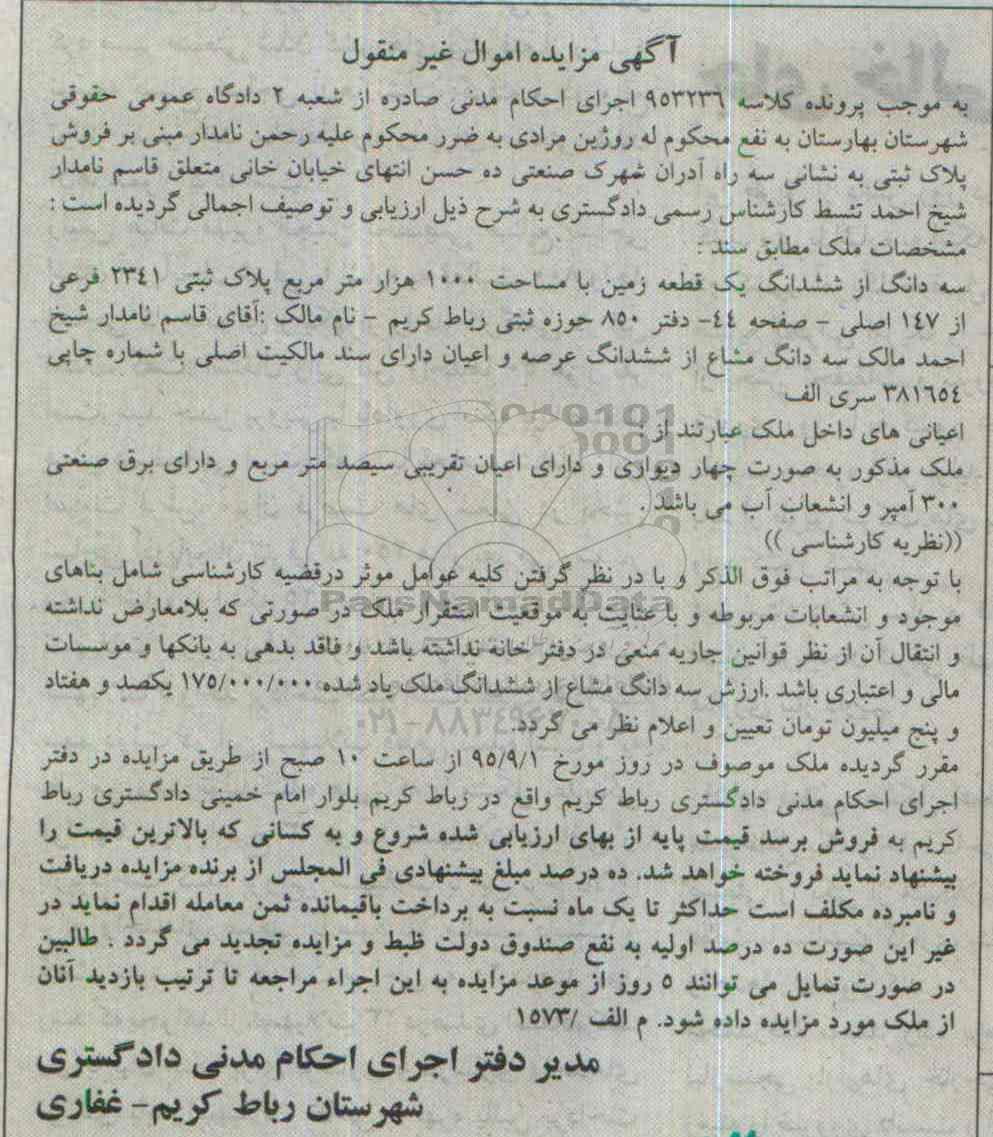 آگهی مزایده اموال غیر منقول
به موجب پرونده کلاسه ۹۵۳۲۳۶ اجرای احکام مدنی صادره از شعبه ۲ دادگاه عمومی حقوقی
شهرستان بهارستان به نفع محکوم له روژین مرادی به ضرر محکوم علیه رحمن نامدار مبنی بر فروش
پلاک ثبتی به نشانی سه راه آدران شهرک صنعتی ده حسن انتهای خیابان خانی متعلق قاسم نامدار
شیخ احمد تئسط کارشناس رسمی دادگستری به شرح ذیل ارزیابی و توصیف اجمالی گردیده است :
مشخصات ملک مطابق سند :
سه دانگ از ششدانگ یک قطعه زمین با مساحت ۱۰۰۰ هزار متر مربع پلاک ثبتی ۲۳٤۱ فرعی
از ۱٤۷ اصلی - صفحه ٤٤- دفتر ۸۵۰ حوزه ثبتی رباط کریم - نام مالک :آقای قاسم نامدار شیخ
احمد مالک سه دانگ مشاع از ششدانگ عرصه و اعیان دارای سند مالکیت اصلی با شماره چاپی
۳۸۱٦۵٤ سری الف
اعیانی های داخل ملک عبارتند از :
ملک مذکور به صورت چهار دیواری و دارای اعیان تقریبی سیصد متر مربع و دارای برق صنعتی
۳۰۰ آمپر و انشعاب آب می باشد .
((نظریه کارشناسی ))
با توجه به مراتب فوق الذکر و با در نظر گرفتن کلیه عوامل موثر درقضیه کارشناسی شامل بناهای
موجود و انشعابات مربوطه و با عنایت به موقعیت استقرار ملک در صورتی که بلامعارض نداشته
و انتقال آن از نظر قوانین جاریه منعی در دفتر خانه نداشته باشد و فاقد بدهی به بانکها و موسسات
مالی و اعتباری باشد .ارزش سه دانگ مشاع از ششدانگ ملک یاد شده ۱۷۵/۰۰۰/۰۰۰ یکصد و هفتاد
و پنج میلیون تومان تعیین و اعلام نظر می گردد.
مقرر گردیده ملک موصوف در روز مورخ ۹۵/۹/۱ از ساعت ۱۰ صبح از طریق مزایده در دفتر
اجرای احکام مدنی دادگستری رباط کریم واقع در رباط کریم بلوار امام خمینی دادگستری رباط
کریم به فروش برسد قیمت پایه از بهای ارزیابی شده شروع و به کسانی که بالاترین قیمت را
پیشنهاد نماید فروخته خواهد شد. ده درصد مبلغ پیشنهادی فی المجلس از برنده مزایده دریافت
و نامبرده مکلف است حداکثر تا یک ماه نسبت به پرداخت باقیمانده ثمن معامله اقدام نماید در
غیر این صورت ده درصد اولیه به نفع صندوق دولت ظبط و مزایده تجدید می گردد . طالبین
در صورت تمایل می توانند ۵ روز از موعد مزایده به این اجراء مراجعه تا ترتیب بازدید آنان
از ملک مورد مزایده داده شود. م الف /۱۵۷۳
مدیر دفتر اجرای احکام مدنی دادگستری
شهرستان رباط کریم- غفاری
ParsNamadData